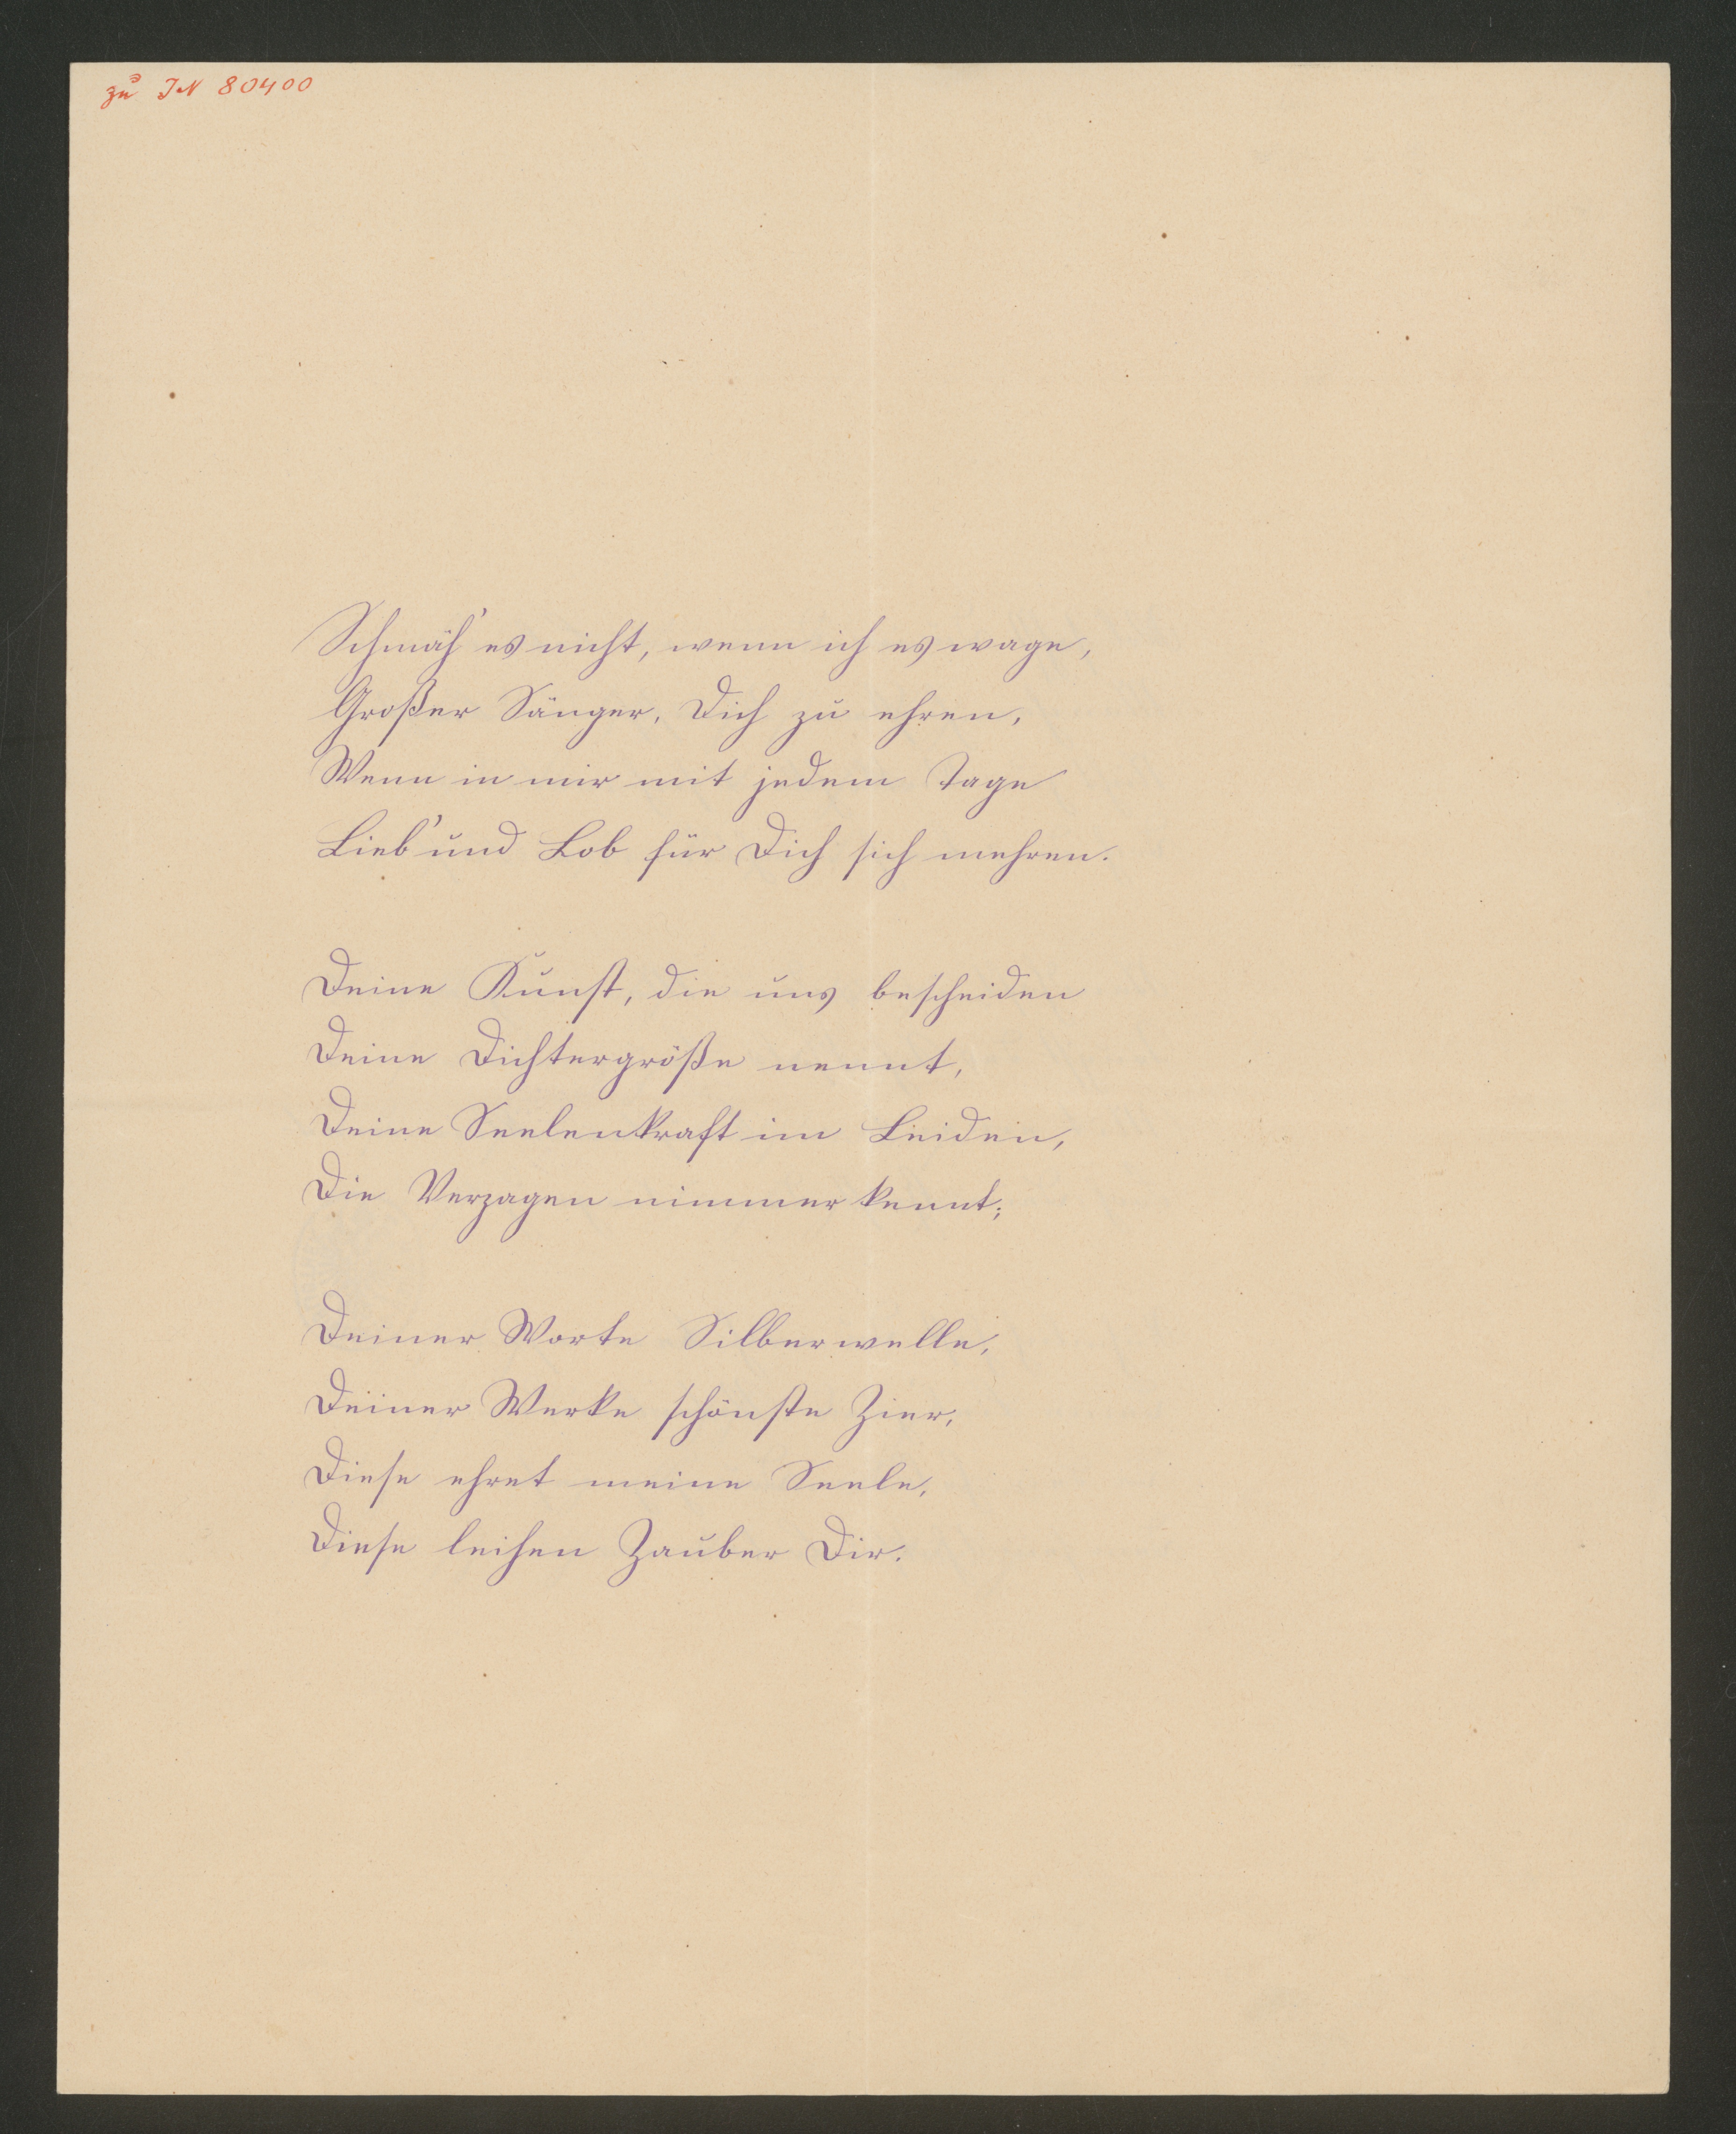 zu IN 80400
Schmäh' es nicht, wenn ich es wage,
Großer Sänger, Dich zu ehren,
Wenn in mir mit jedem Tage
Lieb' und Lob für Dich sich mehren.
Deine Kunst, die uns bescheiden
Deine Dichtergröße nennt,
Deine Seelenkraft im Leiden,
Die Verzagen nimmer kennt;
Deiner Worte Silberwelle,
Deiner Werke schönste Zier,
Diese ehret meine Seele,
Diese leihen Zauber Dir.